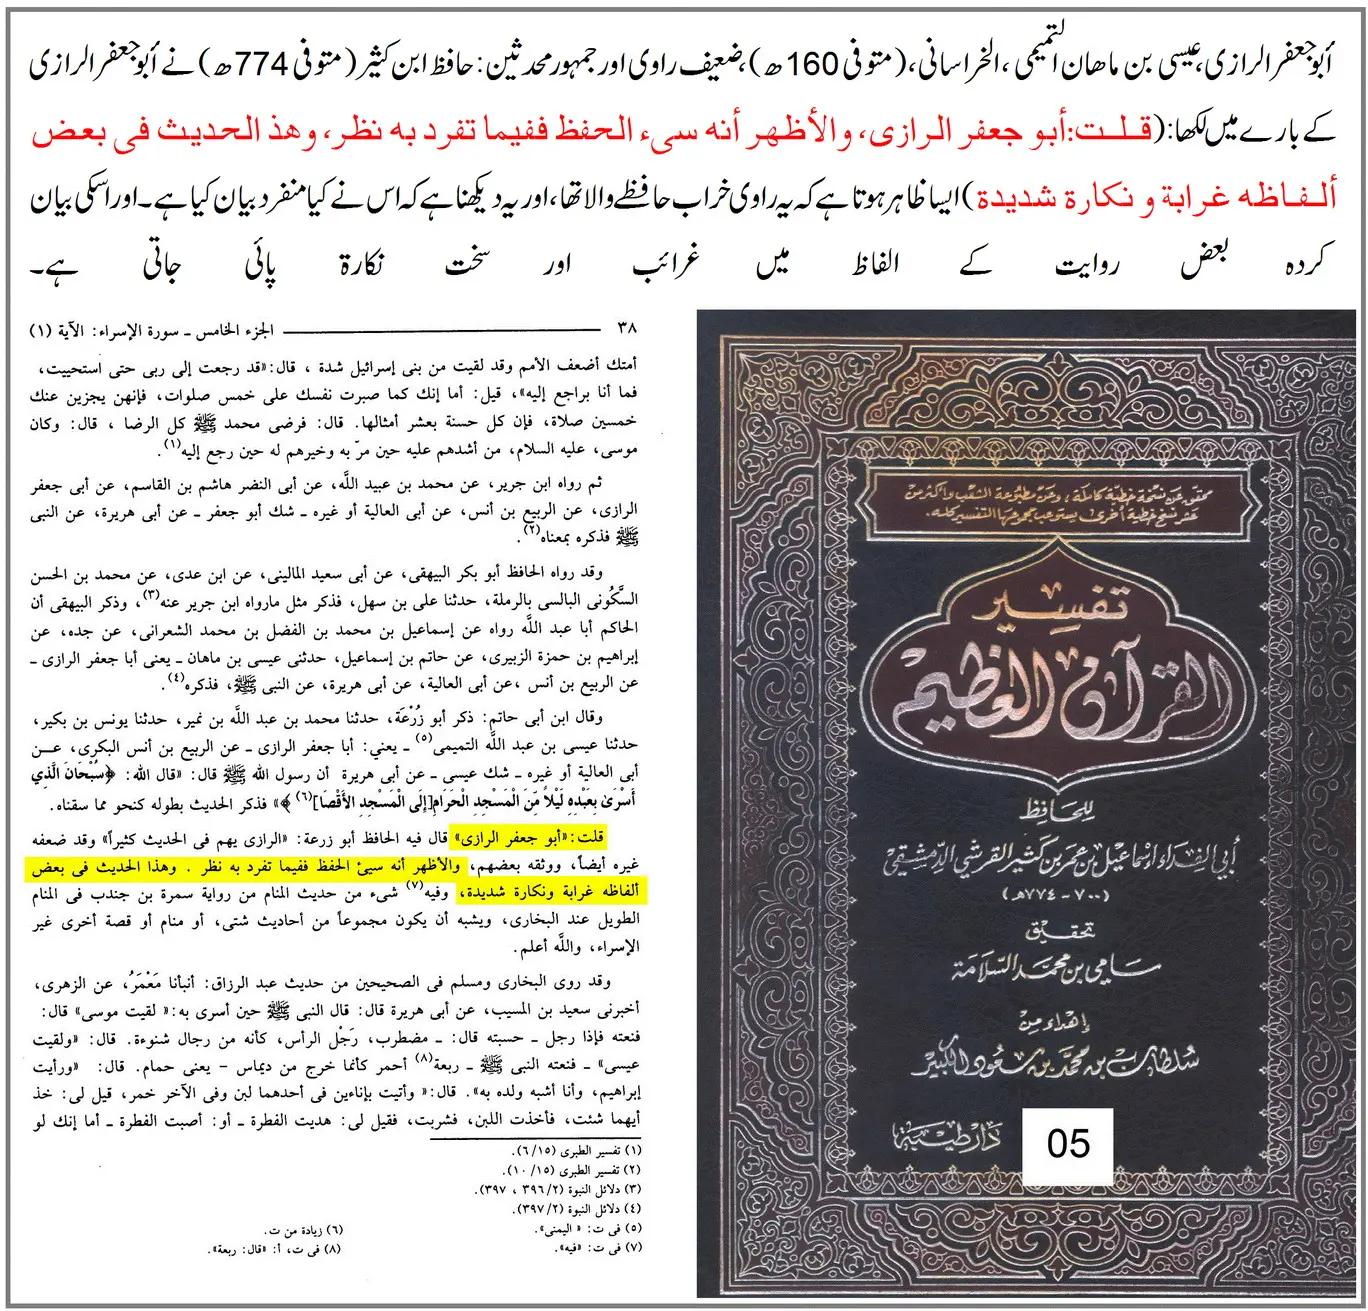 أبو جعفر الرازی، عیسی بن ماھان التمیمی، الخراسانی، (متوفی 160ھ)، ضعیف راوی اور جمہور محدثین: حافظ ابن کثیر (متوفی 774ھ) نے أبو جعفر الرازی
کے بارے میں لکھا: (قلت:أبو جعفر الرازی، والأظهر أنه سیء الحفظ ففیما تفرد به نظر، وهذ الحدیث فی بعض
ألفاظه غرابة و نكارة شديدة) ایسا ظاہر ہوتا ہے کہ یہ راوی خراب حافظے والا تھا، اور یہ دیکھنا ہے کہ اس نے کیا منفرد بیان کیا ہے۔ اور اسکی بیان
کردہ بعض روایت کے الفاظ میں غرائب اور سخت نکارۃ پائی جاتی ہے۔
٣٨ ــــــ الجزء الخامس ـ سورة الإسراء: الآية (١)
أمتك أضعف الأمم وقد لقيت من بنى إسرائيل شدة ، قال: «قد رجعت إلى ربى حتى استحييت،
فما أنا براجع إليه»، قيل: أما إنك كما صبرت نفسك على خمس صلوات، فإنهن يجزين عنك
خمسين صلاة، فإن كل حسنة بعشر أمثالها. قال: فرضى محمد ﷺ كل الرضا ، قال: وكان
موسى، عليه السلام، من أشدهم عليه حين مرّ به وخيرهم له حين رجع إليه(١).
ثم رواه ابن جرير، عن محمد بن عبيد اللَّه، عن أبى النضر هاشم بن القاسم، عن أبى جعفر
الرازى، عن الربيع بن أنس، عن أبى العالية أو غيره ـ شك أبو جعفر ـ عن أبى هريرة، عن النبى
ﷺ فذكره بمعناه(٢).
وقد رواه الحافظ أبو بكر البيهقى، عن أبى سعيد المالينى، عن ابن عدى، عن محمد بن الحسن
السَّكُونى البالسى بالرملة، حدثنا على بن سهل، فذكر مثل مارواه ابن جرير عنه(٣)، وذكر البيهقى أن
الحاكم أبا عبد اللَّه رواه عن إسماعيل بن محمد بن الفضل بن محمد الشعرانى، عن جده، عن
إبراهيم بن حمزة الزبيرى، عن حاتم بن إسماعيل، حدثنى عيسى بن ماهان ـ يعنى أبا جعفر الرازى ـ
عن الربيع بن أنس ،عن أبى العالية، عن أبى هريرة، عن النبى ﷺ، فذكره(٤).
وقال ابن أبى حاتم: ذكر أبو زُرْعَة، حدثنا محمد بن عبد اللَّه بن نمير، حدثنا يونس بن بكير،
حدثنا عيسى بن عبد اللَّه التميمى(٥) ـ يعنى: أبا جعفر الرازى ـ عن الربيع بن أنس البكرى، عـن
أبى العالية أو غيره ـ شك عيسى ـ عن أبى هريرة أن رسول اللَّه ﷺ قال: «قال اللَّه: ﴿سُبْحَانَ الَّذِي
أَسْرَىٰ بِعَبْدِهِ لَيْلاً مِّنَ الْمَسْجِدِ الْحَرَامِ[إِلَى الْمَسْجِدِ الأَقْصَا](٦)﴾» فذكر الحديث بطوله كنحو مما سقناه.
قلت: «أبو جعفر الرازى» قال فيه الحافظ أبو زرعة: «الرازى يهم فى الحديث كثيراً» وقد ضعفه
غيره أيضاً، ووثقه بعضهم، والأظهر أنه سيئ الحفظ ففيما تفرد به نظر . وهذا الحديث فى بعض
ألفاظه غرابة ونكارة شديدة، وفيه(٧) شىء من حديث المنام من رواية سمرة بن جندب فى المنام
الطويل عند البخارى، ويشبه أن يكون مجموعاً من أحاديث شتى، أو منام أو قصة أخرى غير
الإسراء، واللَّه أعلم.
وقد روى البخارى ومسلم فى الصحيحين من حديث عبد الرزاق: أنبأنا مَعْمَرُ، عن الزهرى،
أخبرنى سعيد بن المسيب، عن أبى هريرة قال: قال النبى ﷺ حين أسرى به: « لقيت موسى» قال:
فنعته فإذا رجل ـ حسبته قال: ـ مضطرب، رَجْل الرأس، كأنه من رجال شنوءة. قال: «ولقيت
عيسى» ـ فنعته النبى ﷺ ـ ربعة(٨) أحمر كأنما خرج من ديماس – يعنى حمام. قال: «ورأيت
إبراهيم، وأنا أشبه ولده به». قال:« وأتيت بإناءين فى أحدهما لبن وفى الآخر خمر، قيل لى: خذ
أيهما شئت، فأخذت اللبن، فشربت، فقيل لى: هديت الفطرة ـ أو: أصبت الفطرة ـ أما إنك لو
(١) تفسير الطبرى (٦/١٥).
(٢) تفسير الطبرى (١٠/١٥).
(٣) دلائل النبوة (٣٩٦/٢ ، ٣٩٧).
(٤) دلائل النبوة (٣٩٧/٢).
(٥) فى ت: « اليمنى».
(٦) زيادة من ت.
(٧) فى ت: «فيه».
(٨) فى ت، أ: «قال: ربعة».
محققه عن نسخة خطية كاملة، وعن مطبوعة الشعب وأكثر من
عشر نسخ خطية أخرى يستوعب مجموعها التفسير كله.
تفسير
القرآن العظيم
للحافظ
أبي الفداء إسماعيل بن عمر بن كثير القرشي الدمشقي
(٧٠٠ - ٧٧٤ هـ)
تحقيق
سامي بن محمد السلامة
إهداء من
سلطان بن محمد بن سعود الكبير
دار طيبة
05